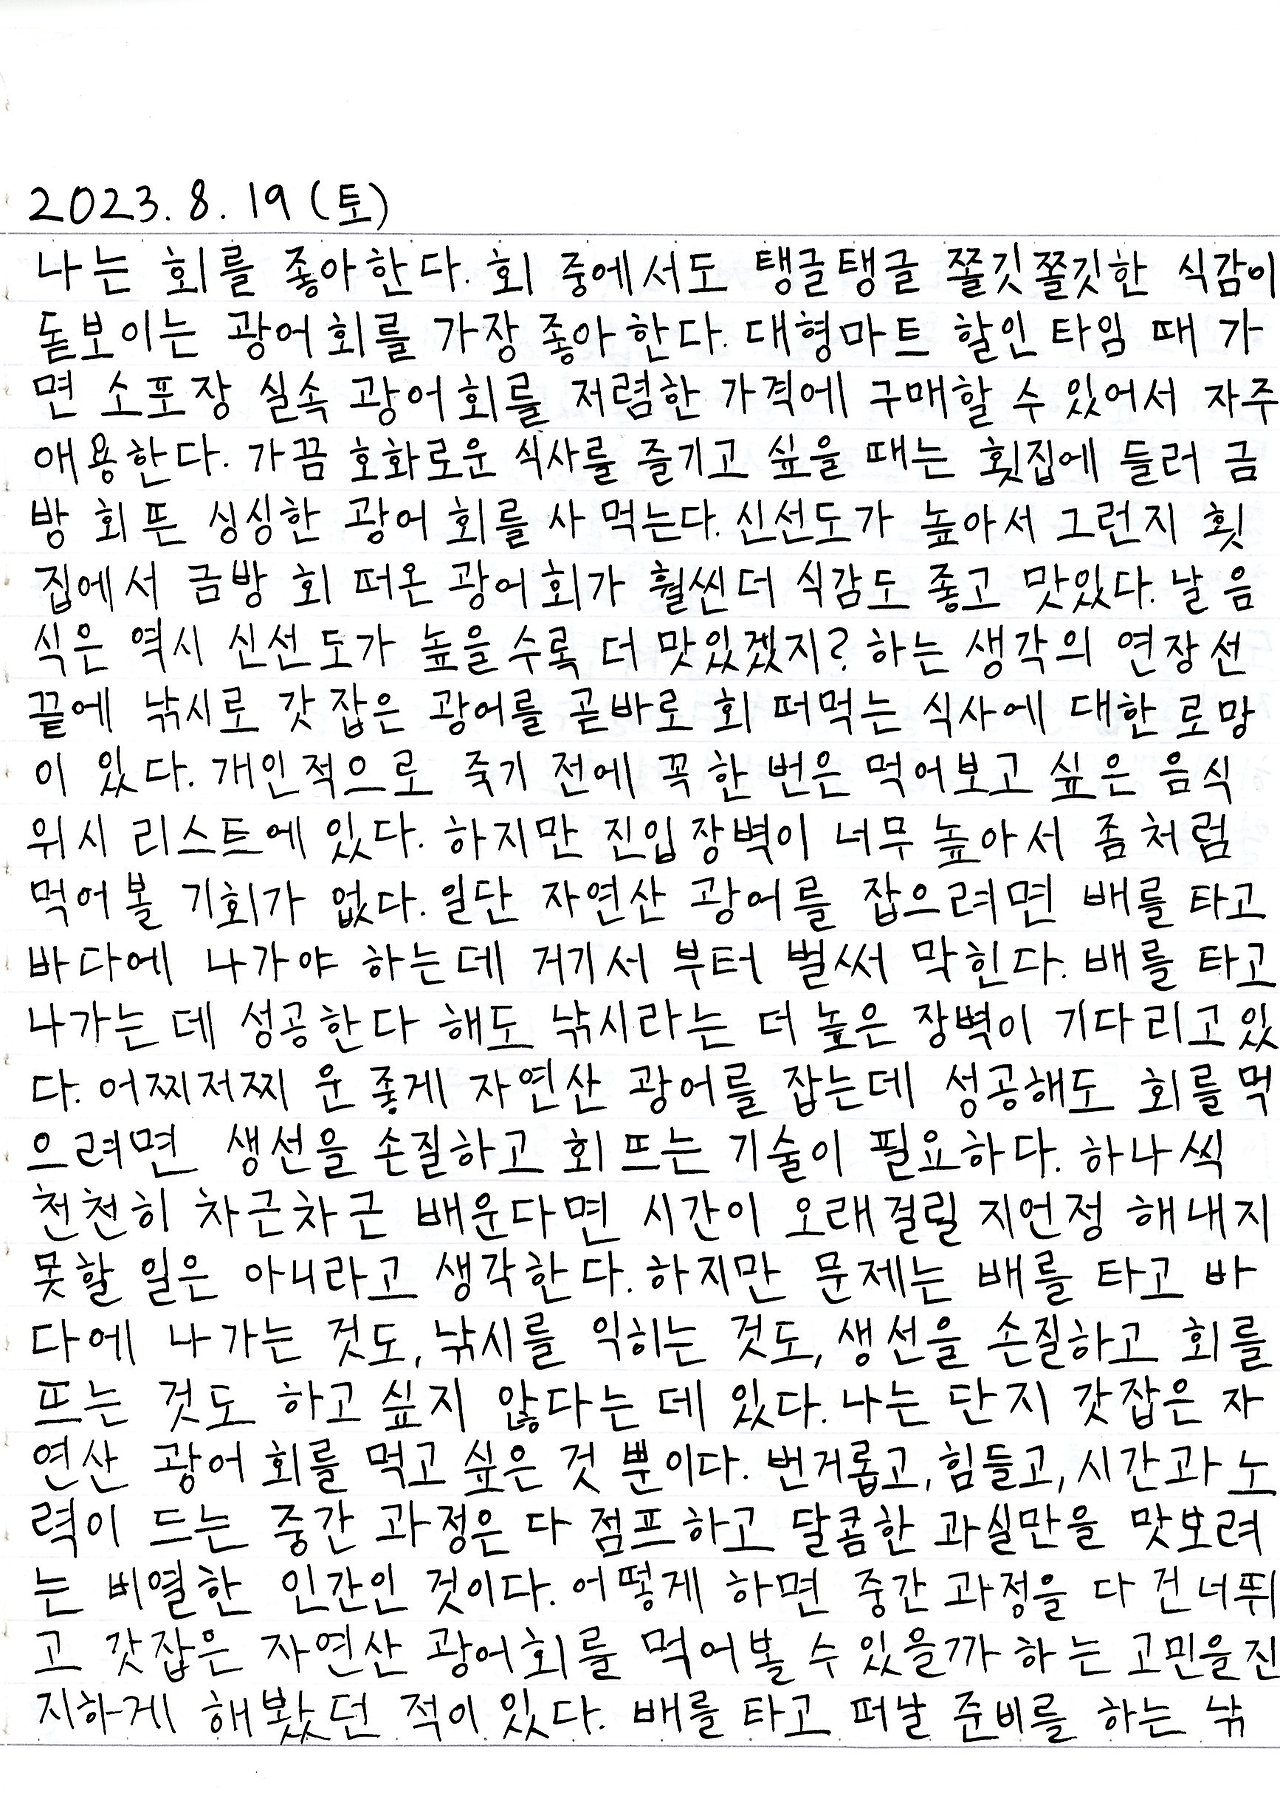 2023. 8. 19 (토)
나는 회를 좋아한다. 회 중에서도 탱글탱글 쫄깃쫄깃한 식감이
돋보이는 광어회를 가장 좋아한다. 대형마트 할인 타임 때 가
면 소포장 실속 광어회를 저렴한 가격에 구매할 수 있어서 자주
애용한다. 가끔 호화로운 식사를 즐기고 싶을 때는 횟집에 들러 금
방 회 뜬 싱싱한 광어 회를 사 먹는다. 신선도가 높아서 그런지 횟
집에서 금방 회 떠온 광어회가 훨씬더 식감도 좋고 맛있다. 날 음
식은 역시 신선도가 높을수록 더 맛있겠지? 하는 생각의 연장선
끝에 낚시로 갓 잡은 광어를 곧바로 회 떠먹는 식사에 대한 로망
이 있다. 개인적으로 죽기 전에 꼭 한 번은 먹어보고 싶은 음식
위시 리스트에 있다. 하지만 진입장벽이 너무 높아서 좀처럼
먹어볼 기회가 없다. 일단 자연산 광어를 잡으려면 배를 타고
바다에 나가야 하는데 거기서 부터 벌써 막힌다. 배를 타고
나가는 데 성공한다 해도 낚시라는 더 높은 장벽이 기다리고 있
다. 어찌저찌 운 좋게 자연산 광어를 잡는데 성공해도 회를 먹
으려면 생선을 손질하고 회 뜨는 기술이 필요하다. 하나씩
천천히 차근차근 배운다면 시간이 오래걸릴 지언정 해내지
못할 일은 아니라고 생각한다. 하지만 문제는 배를 타고 바
다에 나가는 것도, 낚시를 익히는 것도, 생선을 손질하고 회를
뜨는 것도 하고 싶지 않다는 데 있다. 나는 단지 갓잡은 자
연산 광어 회를 먹고 싶은 것 뿐이다. 번거롭고, 힘들고, 시간과 노
력이 드는 중간 과정은 다 점프하고 달콤한 과실만을 맛보려
는 비열한 인간인 것이다. 어떻게 하면 중간 과정을 다 건너뛰
고 갓잡은 자연산 광어회를 먹어볼 수 있을까 하는 고민을 진
지하게 해봤던 적이 있다. 배를 타고 떠날 준비를 하는 낚